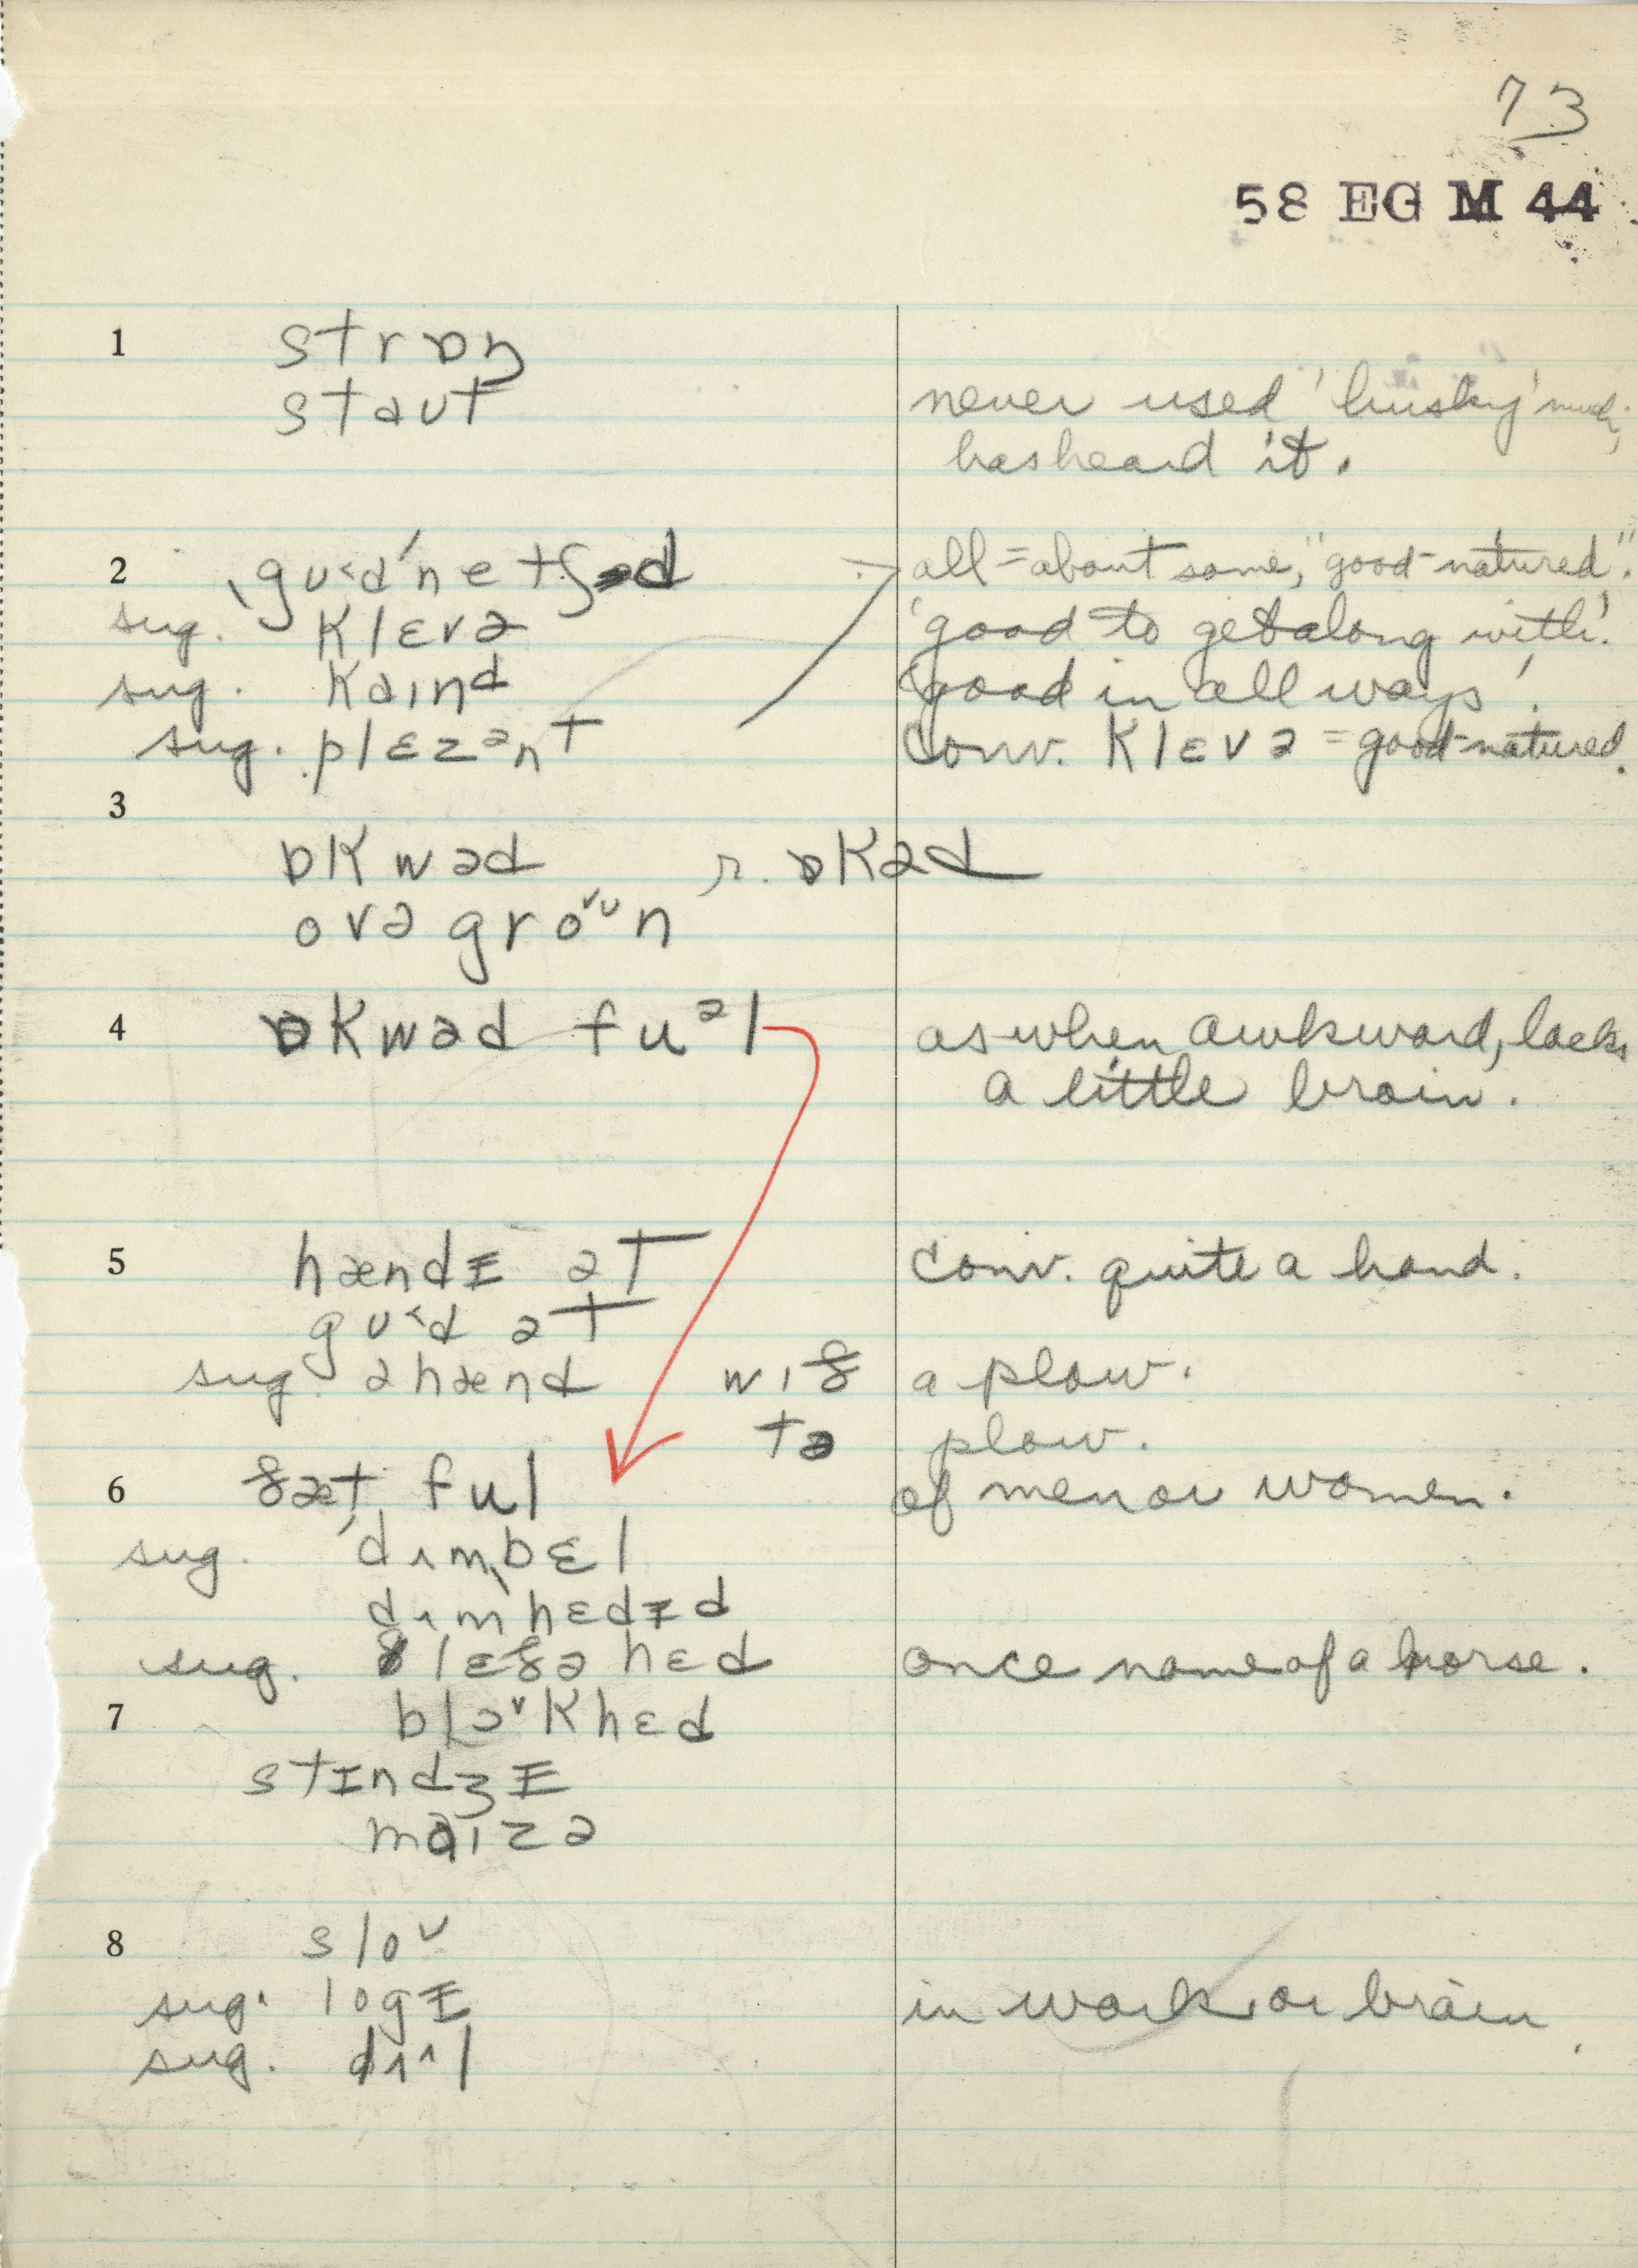 73
58 EG M 44
1 strɒŋ
staut never used 'husky' much,
has heard it.
2 ˌgʊ˂d'netʃəd all = about same, "good-natured".
sug. klɛvə 'good to get along with'.
sug. kaɪnd 'good in all ways'.
sug. plɛzᵊnt conv. klɛvə = good-natured.
3
ɒkwəd r. ɒkəd
ovəgro˅ᶷn
4 ɒkwəd fuᵊl as when awkward, lacks
a little brain.
5 hændɪ ət conv. quite a hand.
gʊ˂d ət
sug. ə hænd wɪð a plow.
tə plow.
6 ðæt ful of men or women.
sug. ˈdʌmˌbɛl
dʌmhɛdɪd
sug. lɛðə hɛd once name of a horse.
7 blɔ˅khɛd
stɪndʒɪ
maɪzə
8 sloᶷ
sug. logɪ in work or brain.
sug. dʌ˄l